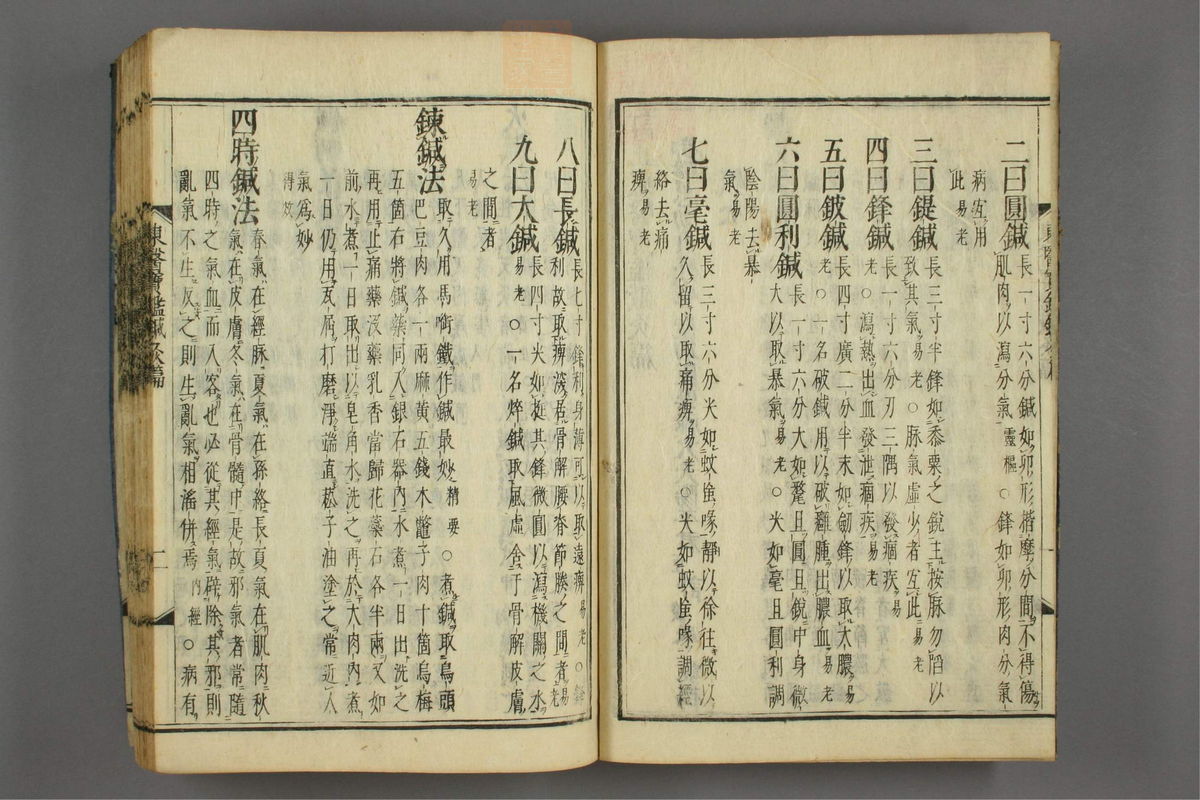 二曰圓鍼 長一寸六分鍼如卵形揩摩分間不得傷
肌肉以瀉分氣 靈樞 ○鋒如卵形肉分氣
病宜用
此 易老
三曰鍉鍼 長三寸半鋒如黍粟之銳主按脉勿陷以
致其氣 易老 ○脉氣虛少者宜此 易老
四曰鋒鍼 長一寸六分刃三隅以發痼疾 易
老 ○瀉熱出血發泄痼疾 易老
五曰鈹鍼 長四寸廣二分半末如劒鋒以取大膿 易
老 ○一名破鍼用以破癰腫出膿血 易老
六曰圓利鍼 長一寸六分大如氂且圓且銳中身微
大以取暴氣 易老 ○尖如毫且圓利調
陰陽去暴
氣 易老
七曰毫鍼 長三寸六分尖如蚊虻喙靜以徐往微以
久留以取痛痺 易老 ○尖如蚊虻喙調經
絡去痛
痺 易老
八曰長鍼 長七寸鋒利身薄可以取遠痺 易老 ○鋒
利故取痺深居骨解腰脊節腠之間者 易老
九曰大鍼 長四寸尖如挺其鋒微圓以瀉機關之水
易老 ○一名焠鍼取風虛舍于骨解皮膚
之間者
易老
鍊鍼法 取久用馬啣鐵作鍼最妙 精要 ○煮鍼取烏頭
巴豆肉各一兩麻黃五錢木鼈子肉十箇烏梅
五箇右將鍼藥同入銀石器內水煮一日出洗之
再用止痛藥沒藥乳香當歸花蘂石各半兩又如
前水煮一日取出以皂角水洗之再於犬肉內煮
一日仍用瓦屑打磨淨端直菘子油塗之常近人
氣爲妙
得效
四時鍼法 春氣在經脉夏氣在孫絡長夏氣在肌肉秋
氣在皮膚冬氣在骨髓中是故邪氣者常隨
四時之氣血而入客也必從其經氣辟除其邪則
亂氣不生反之則生亂氣相滛併焉 內經 ○病有
東醫寶鑑鍼灸篇
二